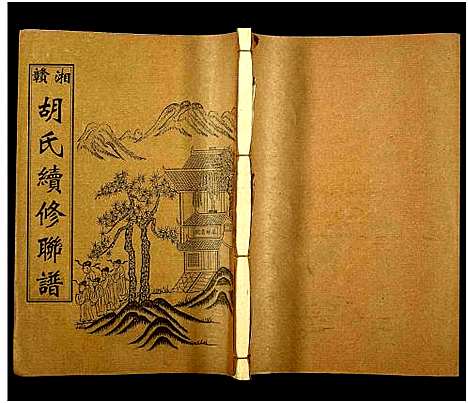 湘
贛
胡氏續修聯譜